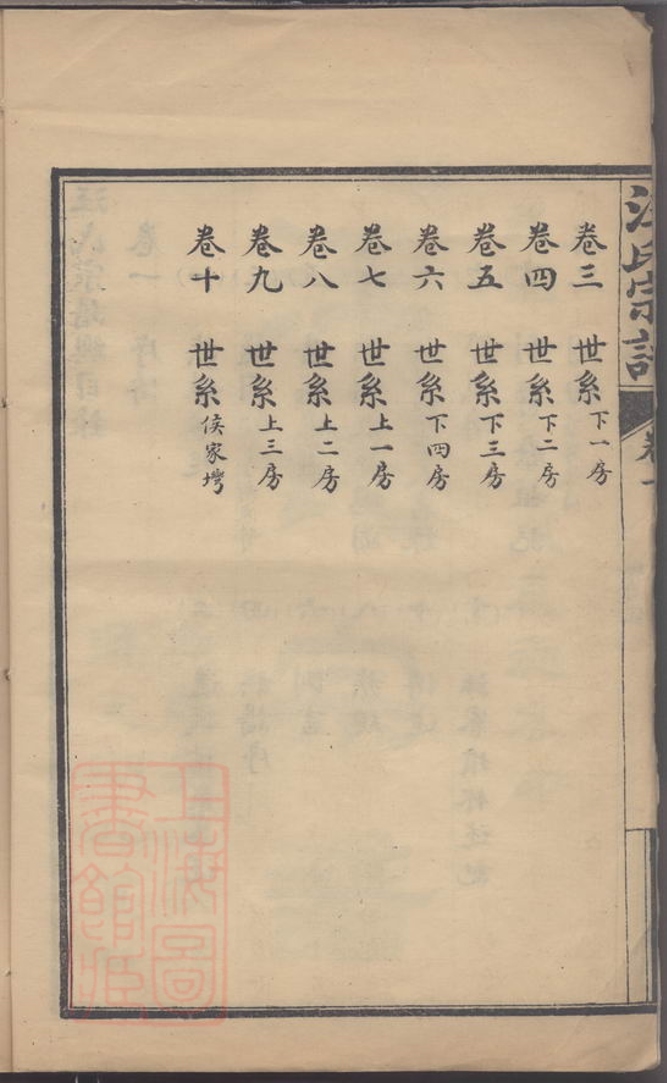 汪氏宗譜
卷一
卷三 世系 下一房
卷四 世系 下二房
卷五 世系 下三房
卷六 世系 下四房
卷七 世系 上一房
卷八 世系 上二房
卷九 世系 上三房
卷十 世系 侯家塆
上海圖
書館藏